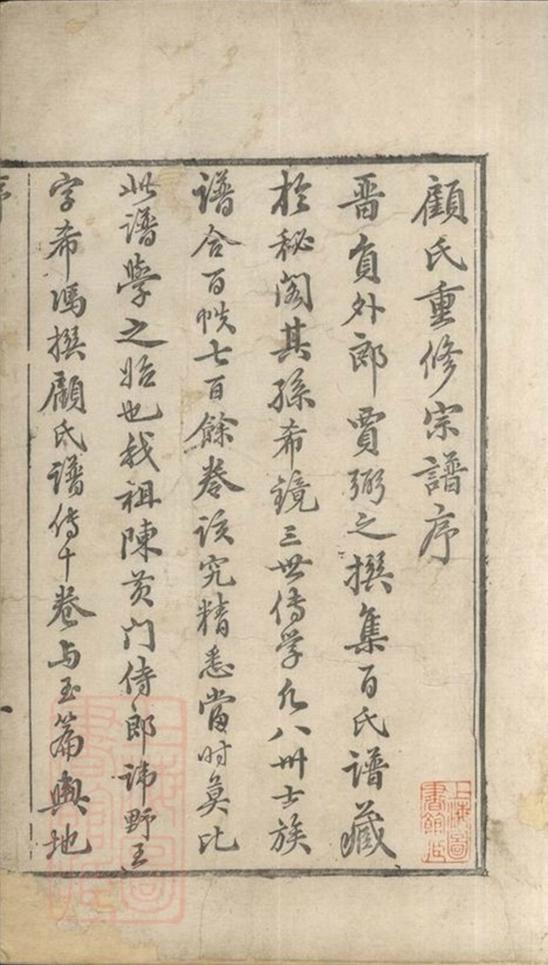 顧氏重修宗譜序
晋負外郎賈弼之撰集百氏譜藏
於秘閣其孫希鏡三世傳学凡八州士族
譜合百帙七百餘卷該究精悉當时莫比
此譜學之始也我祖陳黄门侍郎諱野王
字希馮撰顧氏譜傳十卷与玉篇輿地
上海圖書館藏